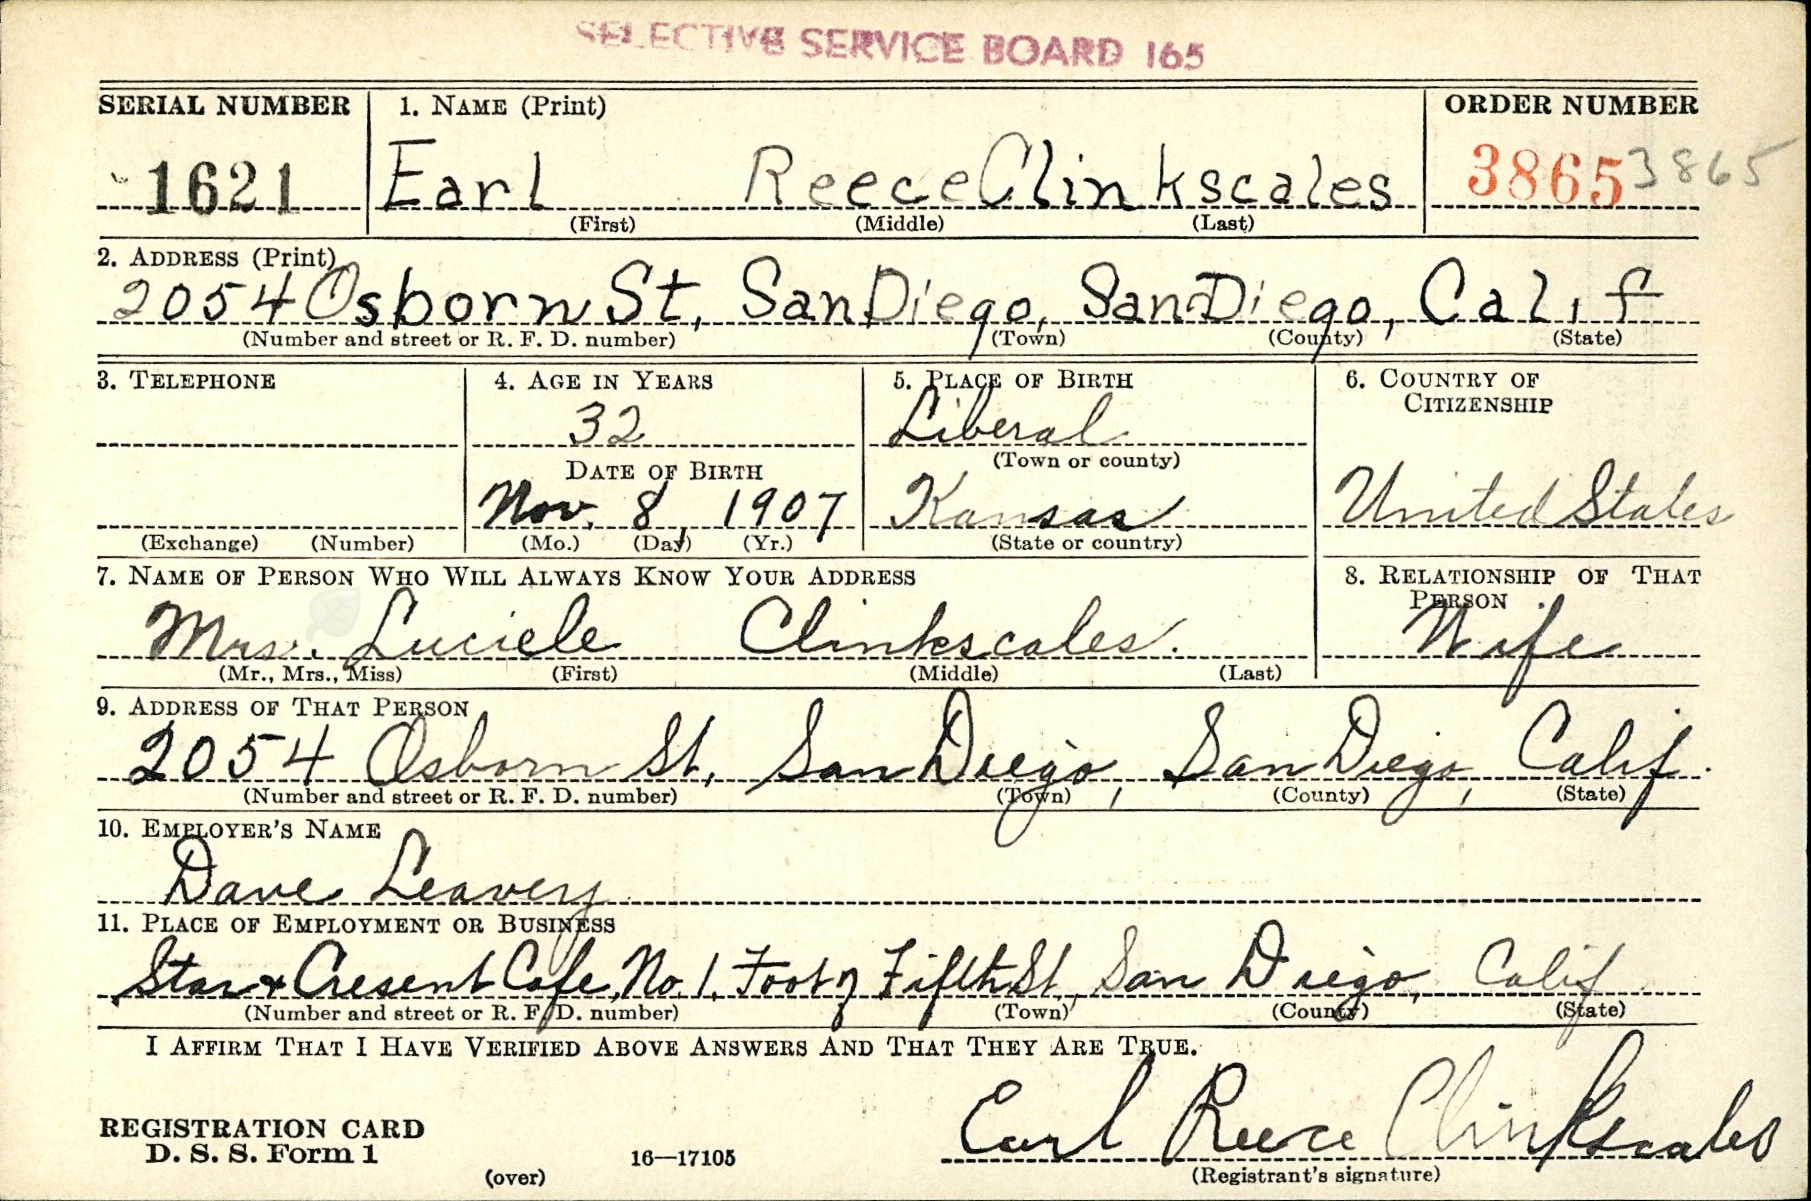 SELECTIVE SERVICE BOARD 165
SERIAL NUMBER 1. NAME (Print) ORDER NUMBER
1621 Earl Reece Clinkscales 3865 3865
(First) (Middle) (Last)
2. ADDRESS (Print)
2054 Osborn St, San Diego, San Diego, Calif
(Number and street or R. F. D. number) (Town) (County) (State)
3. TELEPHONE 4. AGE IN YEARS 5. PLACE OF BIRTH 6. COUNTRY OF
CITIZENSHIP
32 Liberal
DATE OF BIRTH (Town or county)
Nov. 8, 1907 Kansas United States
(Exchange) (Number) (Mo.) (Day) (Yr.) (State or country)
7. NAME OF PERSON WHO WILL ALWAYS KNOW YOUR ADDRESS 8. RELATIONSHIP OF THAT
PERSON
Mrs. Luciele Clinkscales. Wife
(Mr., Mrs., Miss) (First) (Middle) (Last)
9. ADDRESS OF THAT PERSON
2054 Osborn St, San Diego, San Diego, Calif.
(Number and street or R. F. D. number) (Town) (County) (State)
10. EMPLOYER'S NAME
Dave Leavery
11. PLACE OF EMPLOYMENT OR BUSINESS
Star + Cresent Cafe, No. 1, Foot of Fifth St, San Diego, Calif
(Number and street or R. F. D. number) (Town) (County) (State)
I AFFIRM THAT I HAVE VERIFIED ABOVE ANSWERS AND THAT THEY ARE TRUE.
Earl Reece Clinkscales
REGISTRATION CARD
D. S. S. Form 1
(over) 16—17105 (Registrant's signature)